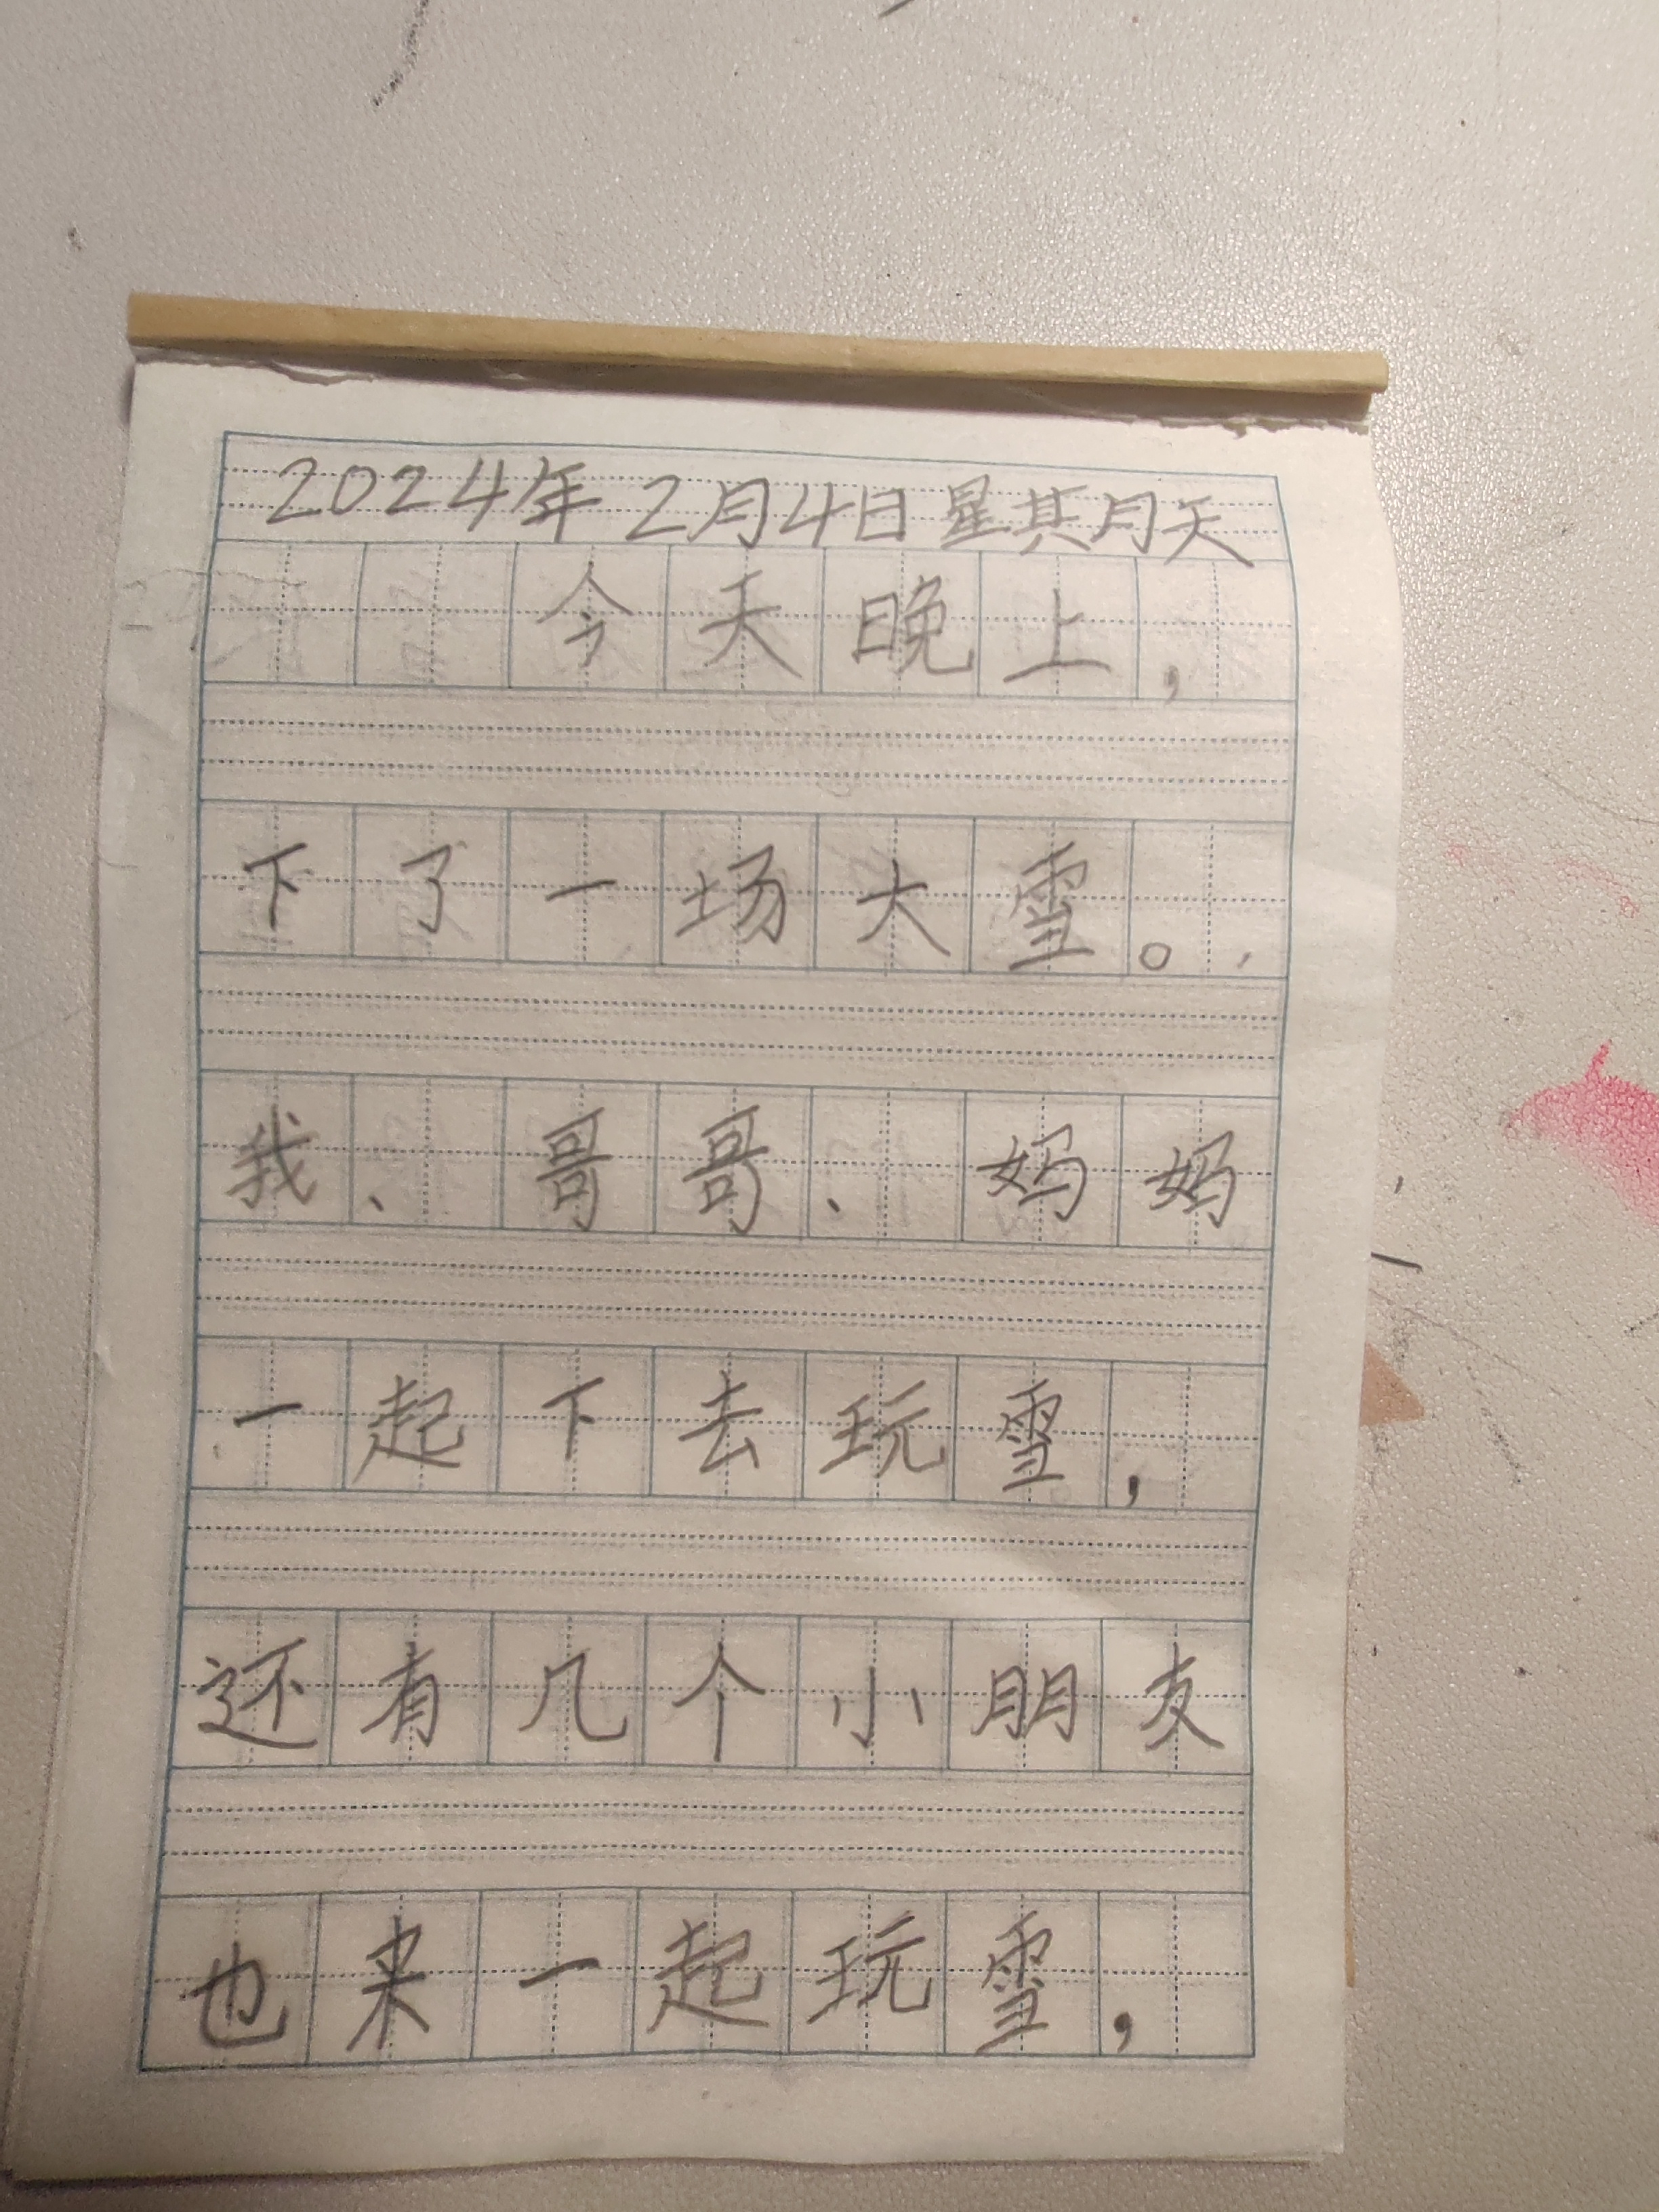 2024年2月4日星期天
今天晚上，
下了一场大雪。
我、哥哥、妈妈
一起下去玩雪，
还有几个小朋友
也来一起玩雪，